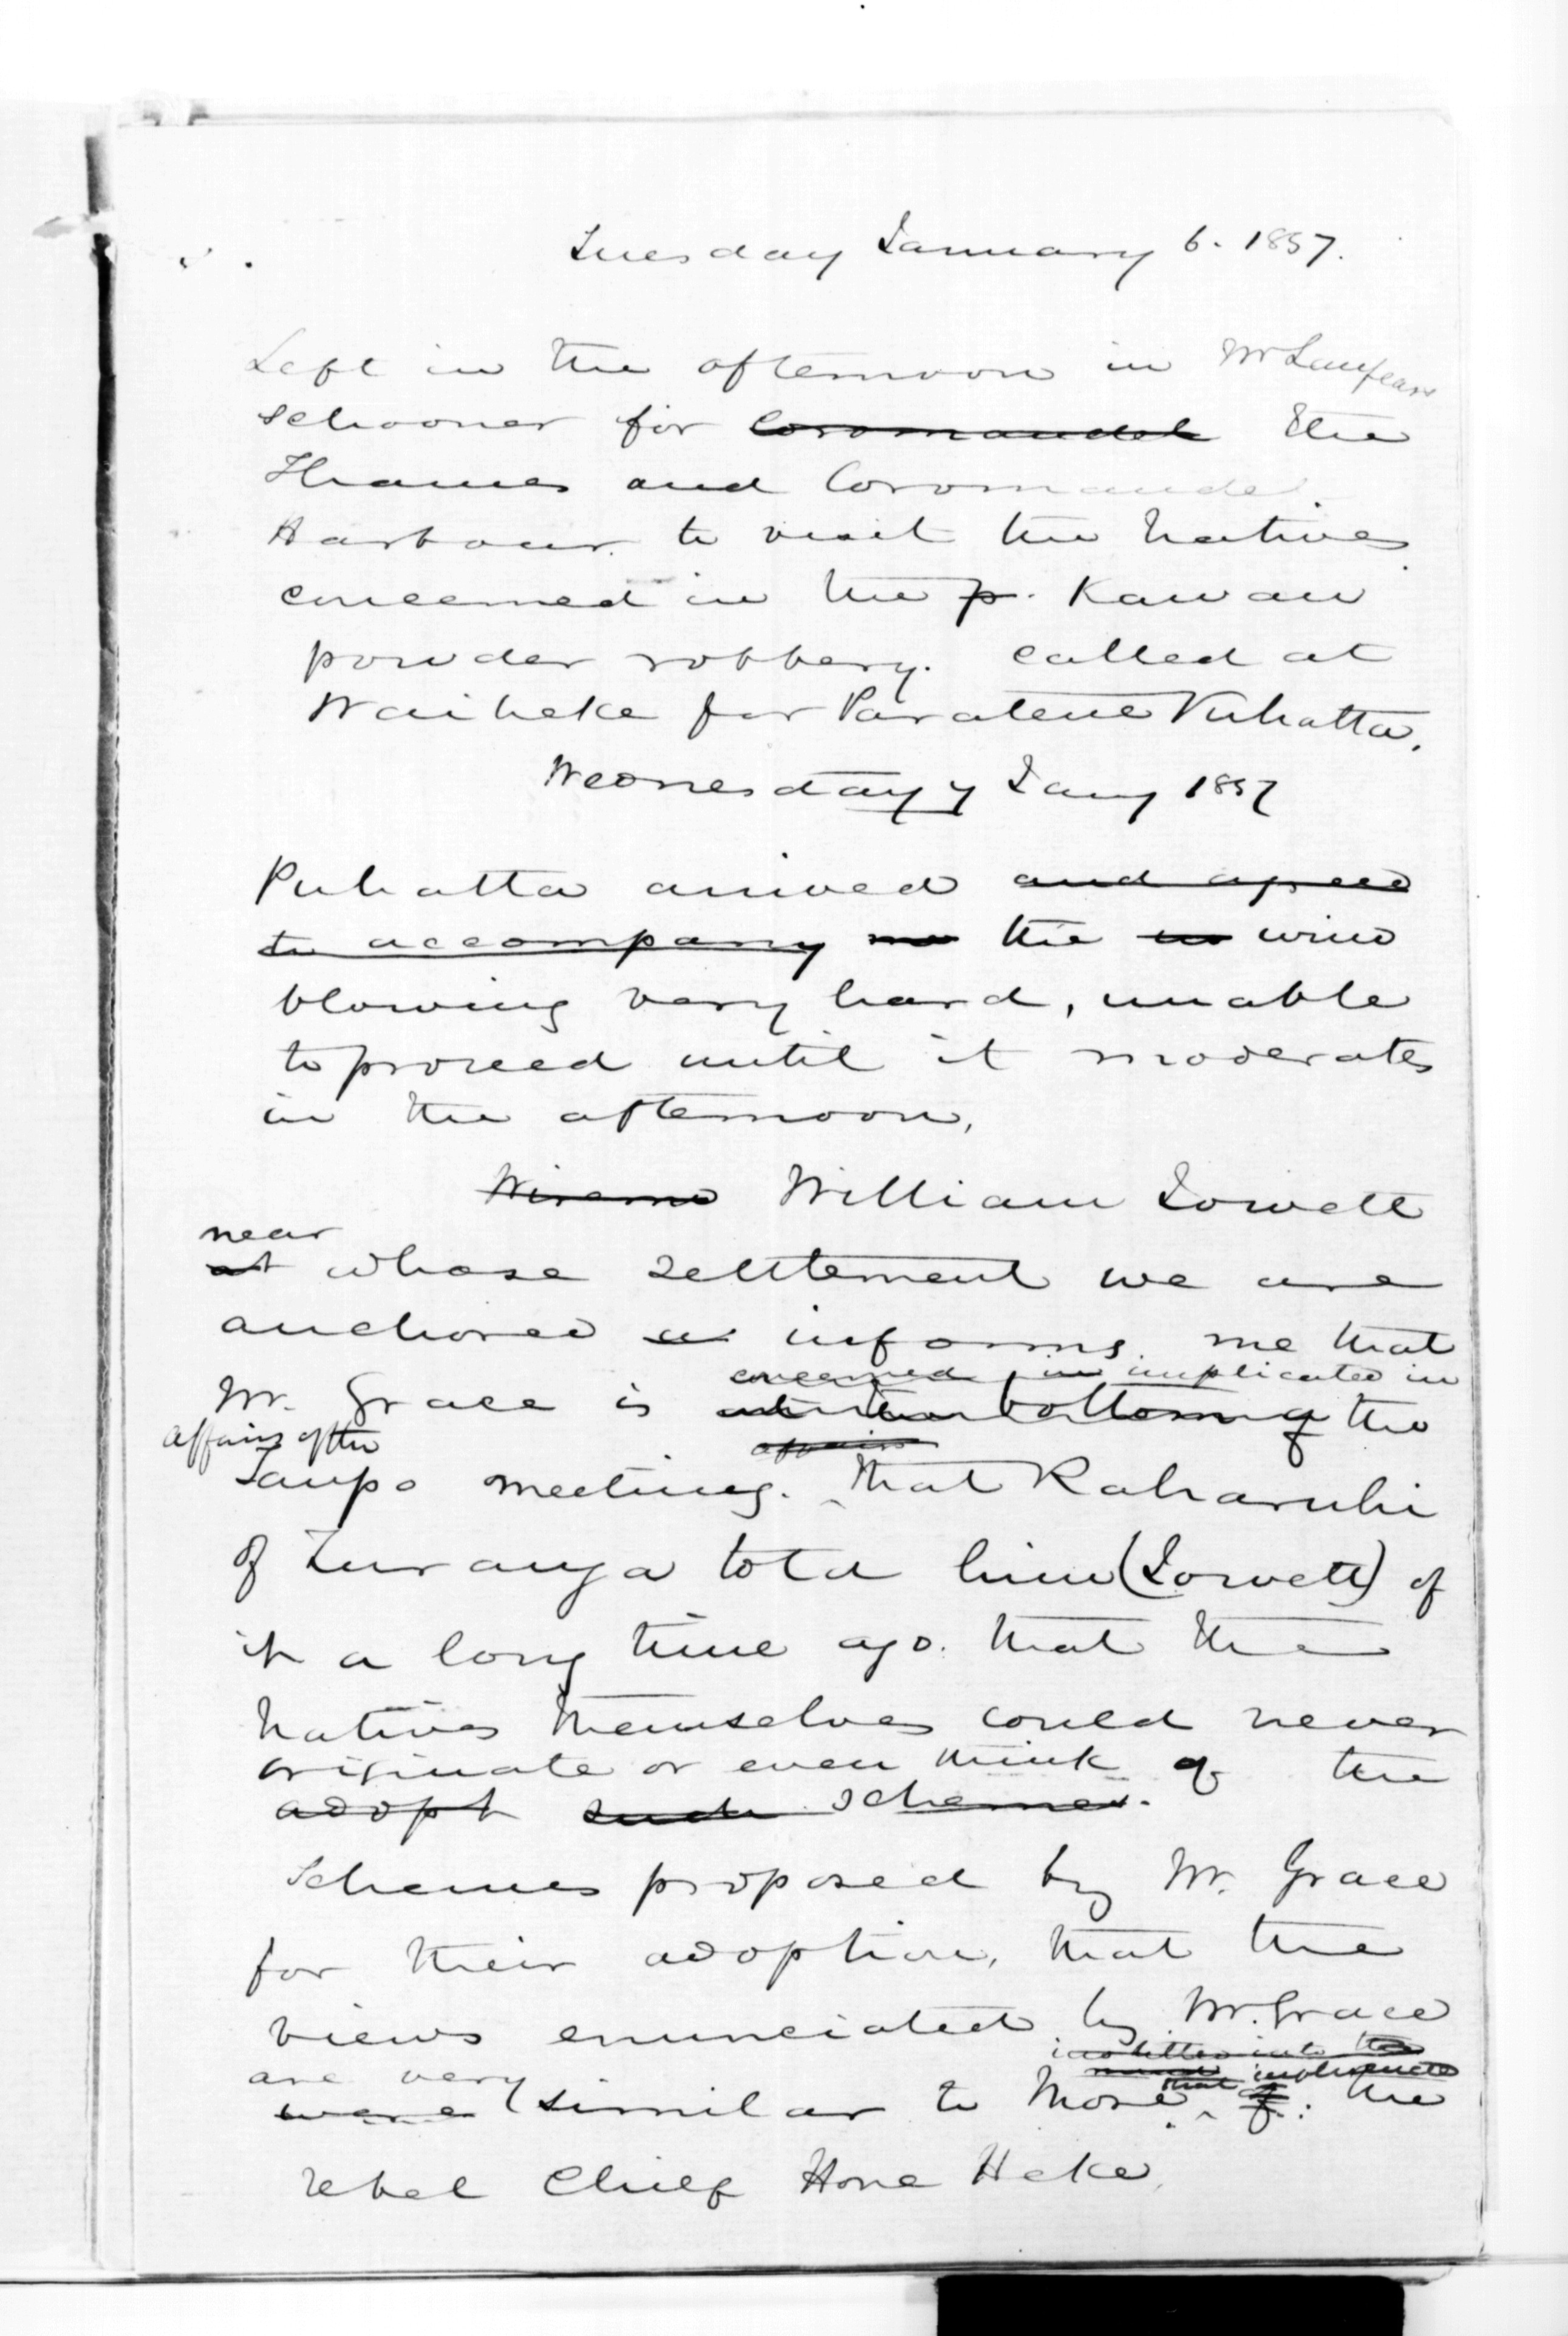 Tuesday January 6. 1857.
Left in the afternoon in Mr Lanfears
schooner for Coromandel the
Thames and Coromandel
Harbour to visit the Natives
concerned in the p. Kawau
powder robbery. called at
Waiheke for Paratene Puhatta.
Wednesday 7 Jany 1857
Puhatta arrived and agreed
to accompany me the wind
blowing very hard, unable
to proceed until it moderates
in the afternoon.
Wiremu William Jowett
near
at whose settlement we are
anchored informs me that
concerned in implicated in
Mr. Grace is at the bottom of the
affairs of the
affairs
Taupo meeting. that Kaharuhi
of Turanga told him (Jowett) of
it a long time ago. that the
Natives themselves could never
originate or even think of the
adopt such schemes.
schemes proposed by Mr. Grace
for their adoption, that the
views enunciated by Mr. Grace
are very
were similar to those of the
rebel Chief Hone Heke.